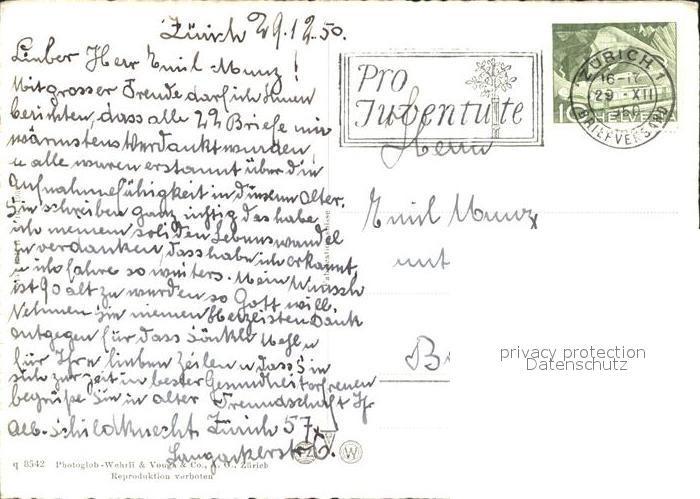 Zürich 29.12.50.
Lieber Herr Emil Munz!
Mit grosser Freude darf ich Ihnen
berichten, dass alle 22 Briefe mir
wärmstens Verdankt wurden,
u alle waren erstaunt über die
Aufnahmefähigkeit in diesem Alter.
Sie schreiben ganz richtig das habe
ich meinem soliden Lebenswandel
zu verdanken, dass habe ich erkannt,
u ich fahre so weiters. Mein Wunsch
ist 90 alt zu werden so Gott will.
Nehmen Sie meinen Herzlisten Dank
entgegen für dass
für Ihre lieben Zeilen u dass Sie
sich zur Zeit in bester Gesundheit erfreuen
begrüße Sie in alter Freundschaft Ihr
Alb. Schildknecht Zürich 57
Langackerstr.
q 8542 Photoglob-Wehrli & Vouga & Co., A. G., Zürich
Reproduktion verboten
Pro
Juventute
ZÜRICH 1
16-17
29. XII
BRIEFVERSAND
10 HELVETIA
Herrn
Emil Munz
privacy protection
Datenschutz